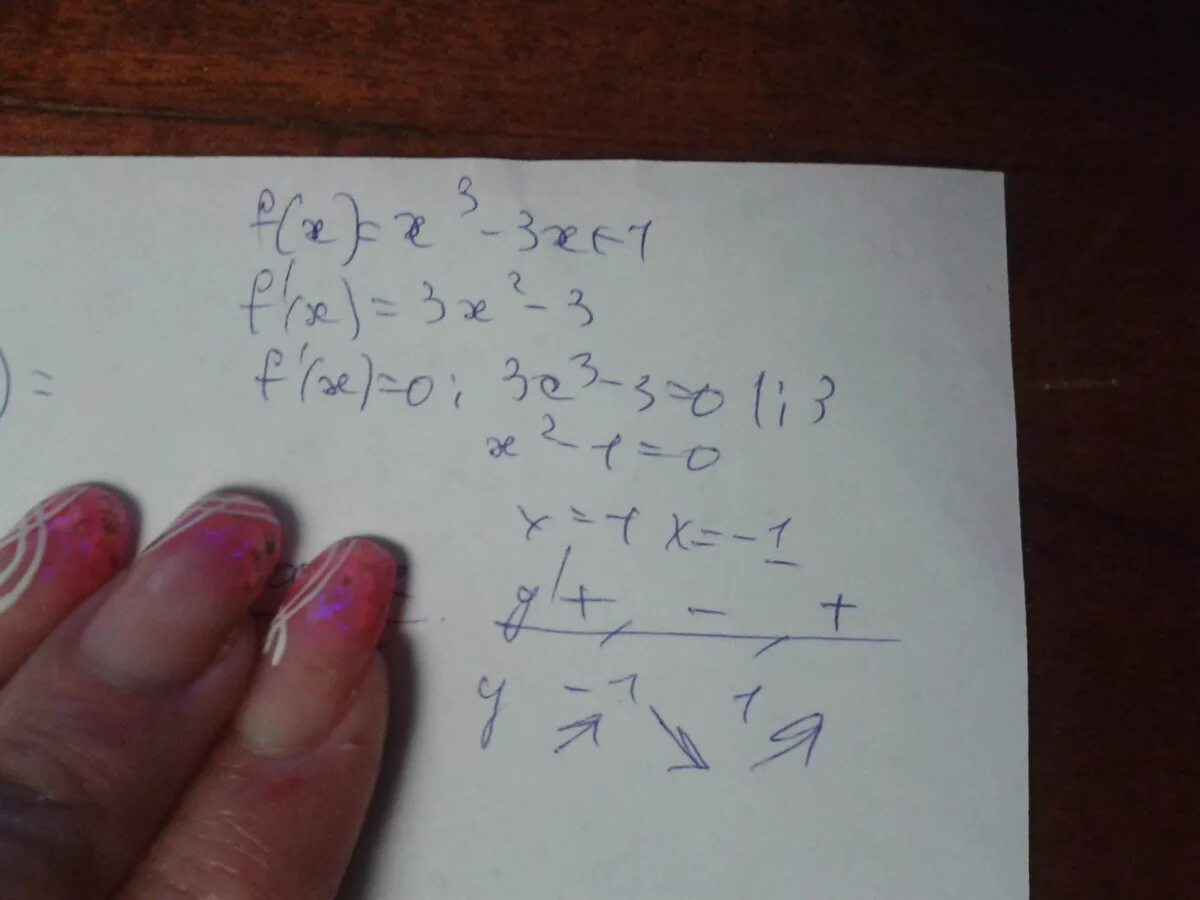 f(x)=x³-3x+1
f'(x)=3x²-3
)=
f'(x)=0; 3x³-3=0 |:3
x²-1=0
x=1 x=-1
y' + - +
y -1 1